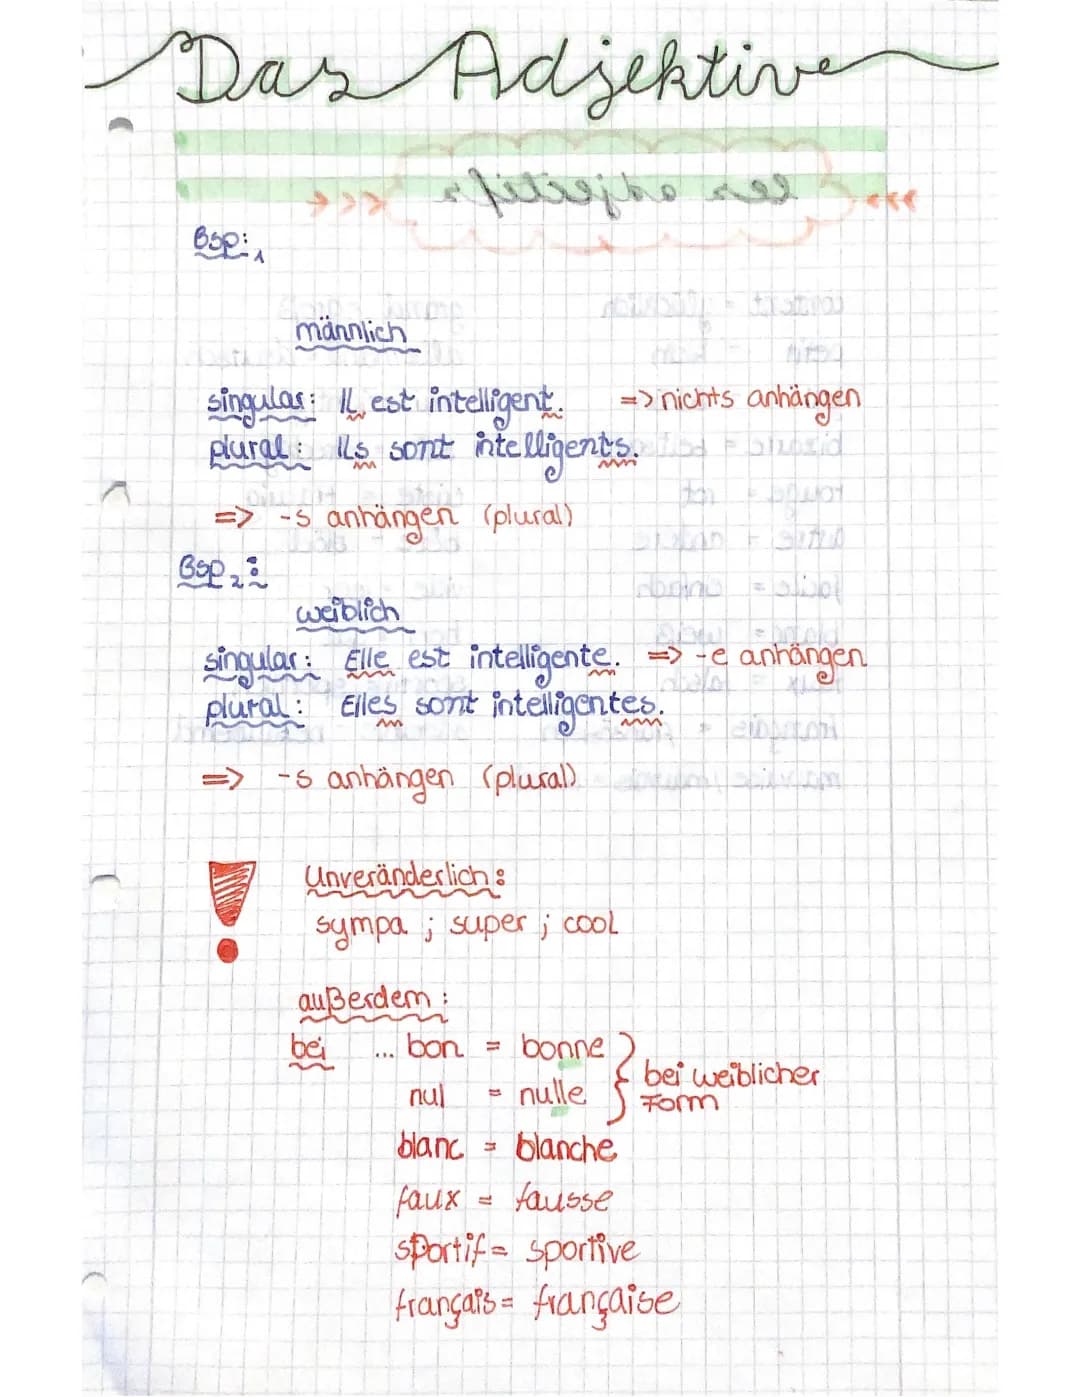 Das Adjektive
les adjectifs
Bsp:1
männlich
singular: Il est intelligent. => nichts anhängen
plural: Ils sont intelligents.
=> -s anhängen (plural)
Bsp2:
weiblich
singular: Elle est intelligente. => -e anhängen
plural: Elles sont intelligentes.
=> -s anhängen (plural)
Unveränderlich:
sympa ; super ; cool
außerdem:
bei ... bon = bonne
nul = nulle
bei weiblicher
Form
blanc = blanche
faux = fausse
sportif = sportive
français = française